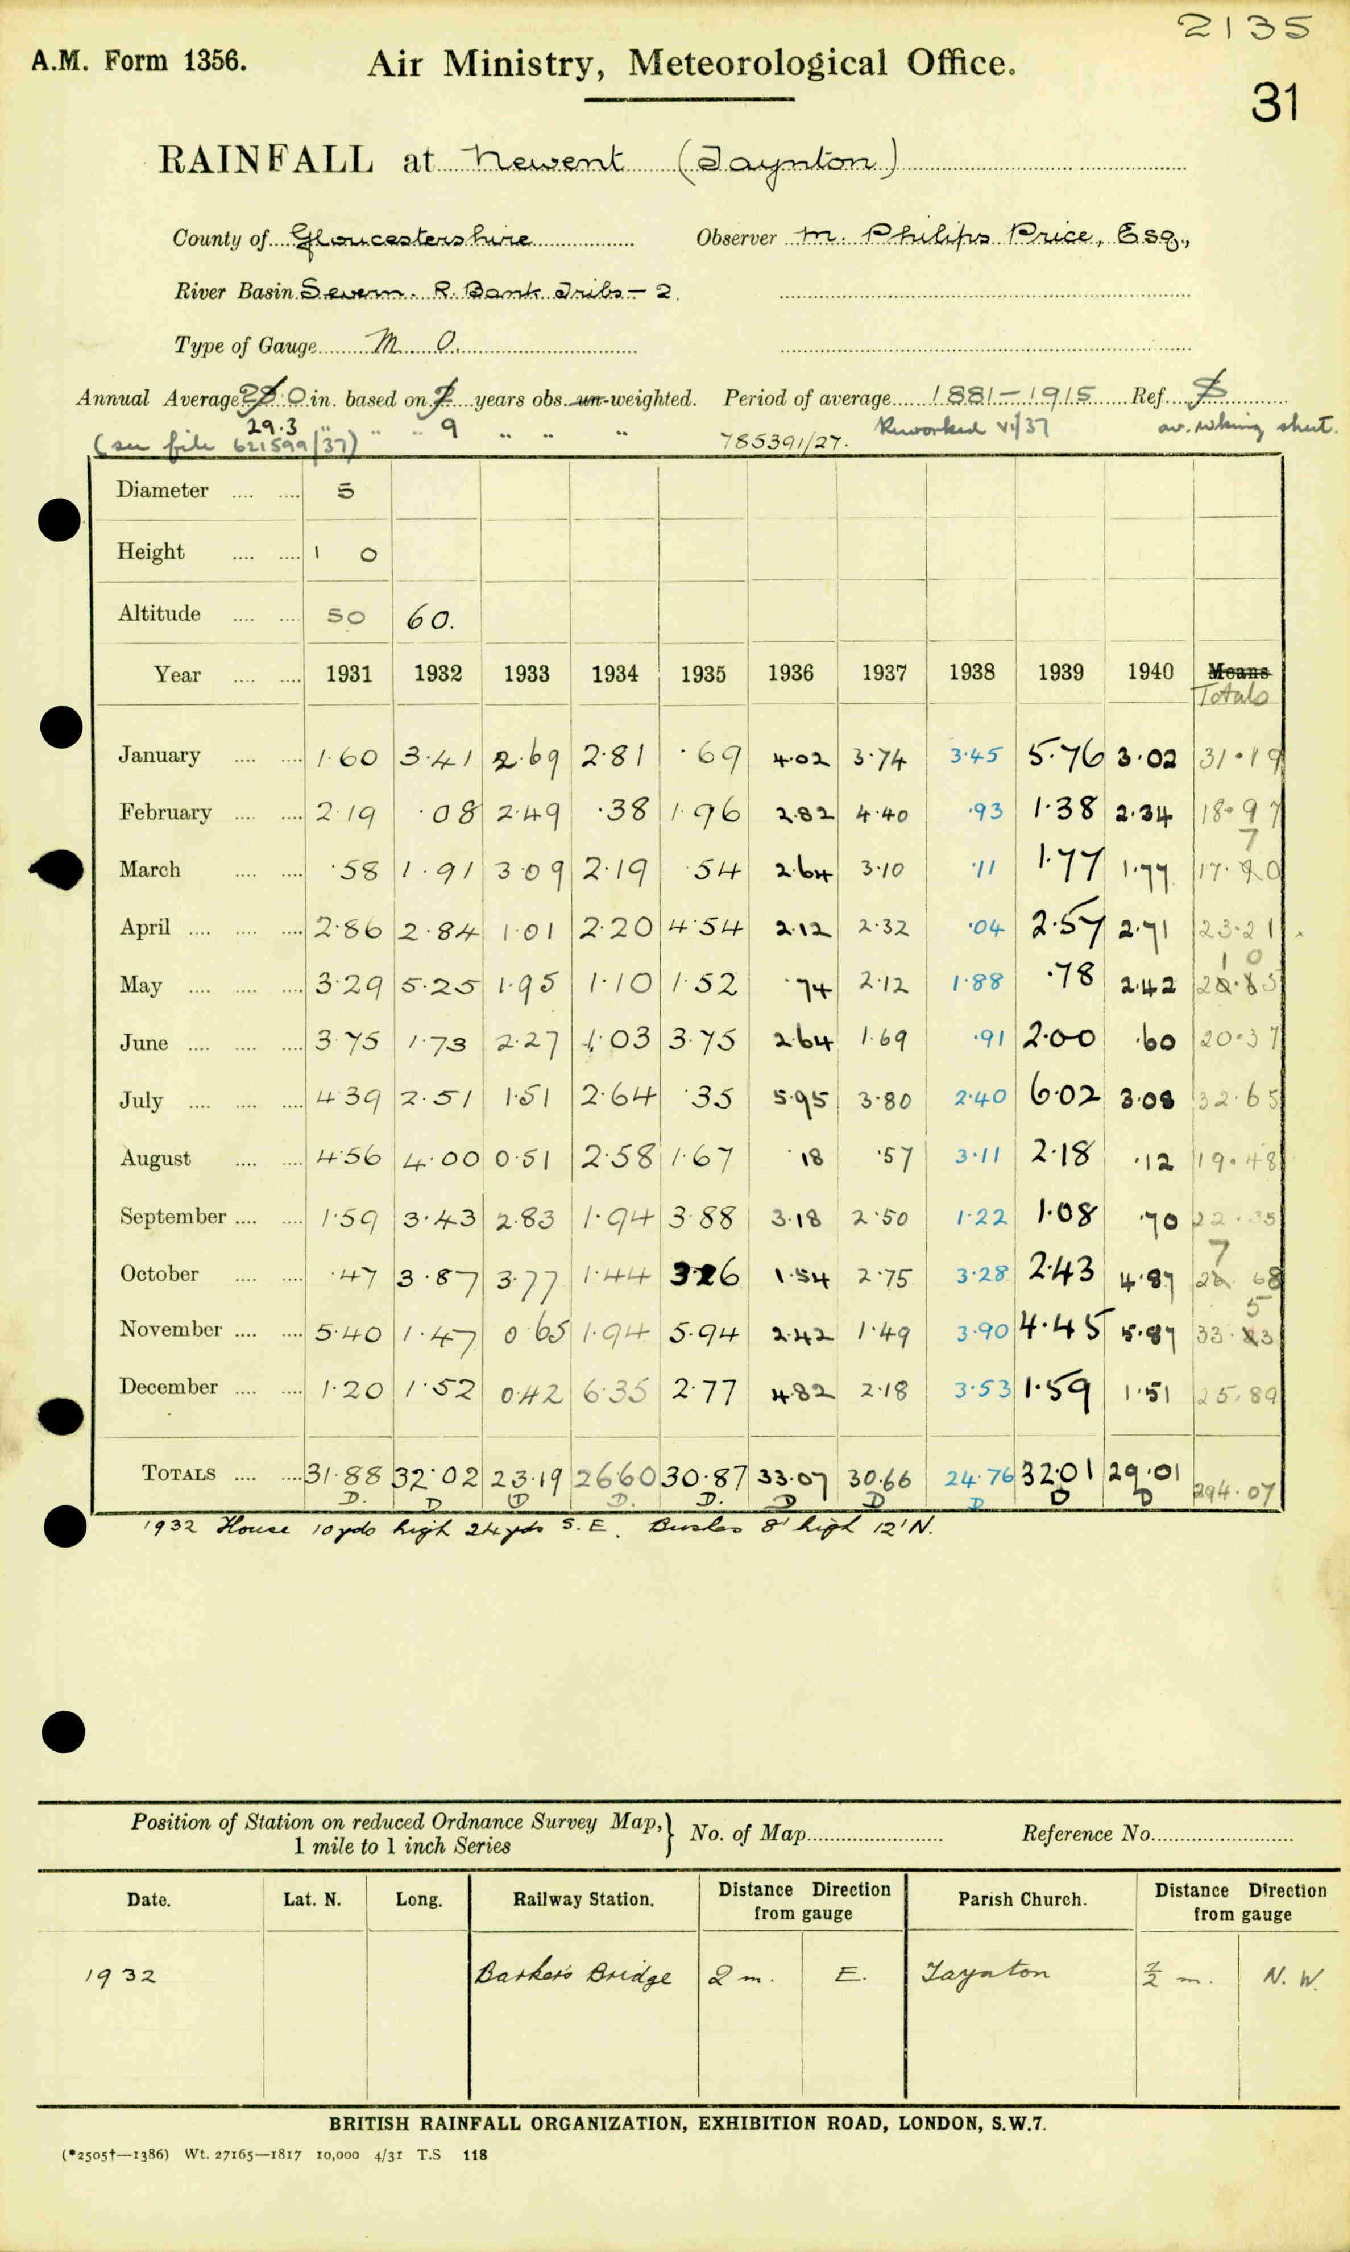 2135
A.M. Form 1356. Air Ministry, Meteorological Office.
31
RAINFALL at Newent (Taynton)
County of Gloucestershire Observer M. Philips Price, Esq.,
River Basin Severn. R. Bank Tribs – 2.
Type of Gauge M O.
Annual Average 28.0 in. based on 7 years obs. un-weighted. Period of average 1881–1915 Ref.
29.3 " " " 9 " " " 785391/27. Reworked VI/37
(see file 621599/37)
Diameter 5
Height 1 0
Altitude 50 60.
Year 1931 1932 1933 1934 1935 1936 1937 1938 1939 1940 Means
Totals
January 1.60 3.41 2.69 2.81 .69 4.02 3.74 3.45 5.76 3.02 31.19
February 2.19 .08 2.49 .38 1.96 2.82 4.40 .93 1.38 2.34 18.97
March .58 1.91 3.09 2.19 .54 2.64 3.10 .11 1.77 1.77 17.70
April 2.86 2.84 1.01 2.20 4.54 2.12 2.32 .04 2.57 2.71 23.21
May 3.29 5.25 1.95 1.10 1.52 .74 2.12 1.88 .78 2.42 21.05
June 3.75 1.73 2.27 1.03 3.75 2.64 1.69 .91 2.00 .60 20.37
July 4.39 2.51 1.51 2.64 .35 5.95 3.80 2.40 6.02 3.08 32.65
August 4.56 4.00 0.51 2.58 1.67 .18 .57 3.11 2.18 .12 19.48
September 1.59 3.43 2.83 1.94 3.88 3.18 2.50 1.22 1.08 .70 22.35
October .47 3.87 3.77 1.44 3.26 1.54 2.75 3.28 2.43 4.87 27.68
November 5.40 1.47 0.65 1.94 5.94 2.42 1.49 3.90 4.45 5.87 33.53
December 1.20 1.52 0.42 6.35 2.77 4.82 2.18 3.53 1.59 1.51 25.89
TOTALS 31.88 32.02 23.19 26.60 30.87 33.07 30.66 24.76 32.01 29.01 294.07
D. D D D. D. D D D D D
1932 House 10 yds high 24 yds S.E. Bushes 8' high 12' N.
Position of Station on reduced Ordnance Survey Map,
1 mile to 1 inch Series } No. of Map Reference No.
Date. Lat. N. Long. Railway Station. Distance Direction from gauge Parish Church. Distance Direction from gauge
1932 Barbers Bridge 2 m. E. Taynton ½ m. N.W.
BRITISH RAINFALL ORGANIZATION, EXHIBITION ROAD, LONDON, S.W.7.
(*2505†—1386) Wt. 27165—1817 10,000 4/31 T.S 118